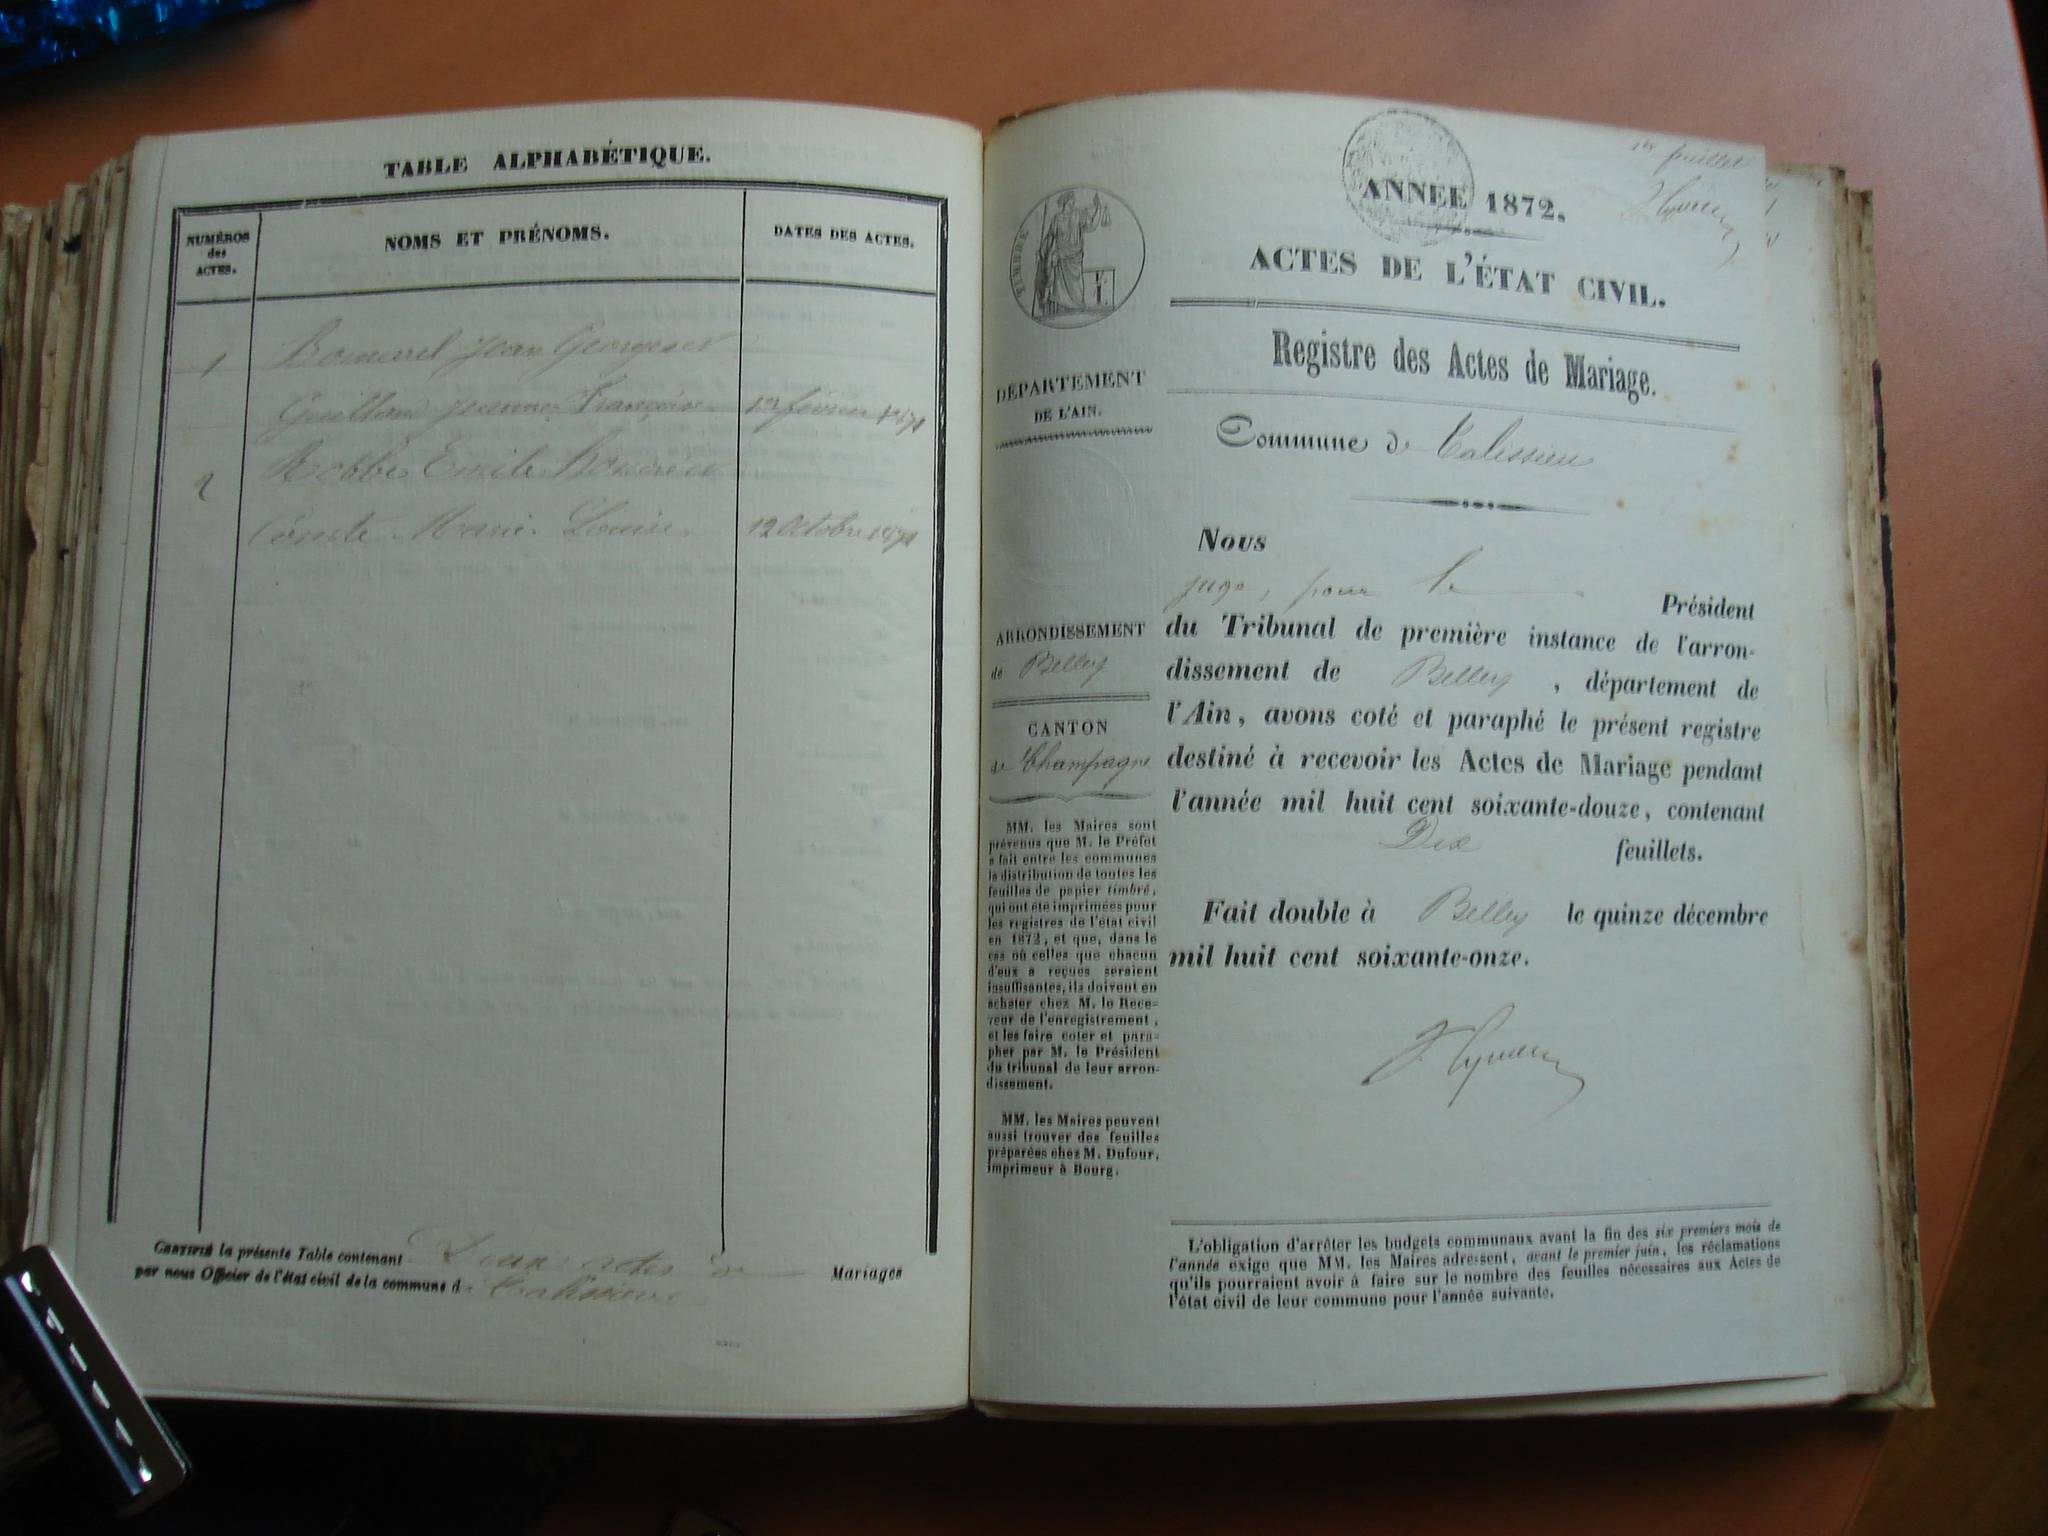 TABLE ALPHABÉTIQUE.
NUMÉROS
des
ACTES.
NOMS ET PRÉNOMS.
DATES DES ACTES.
1 Bomarel Jean Georges et
Guilland Jeanne Françoise 1er février 1871
2 Robbe Emile honoré et
Comte Marie Louise 12 Octobre 1871
CERTIFIÉ la présente Table contenant Deux actes de Mariages
par nous Officier de l'état civil de la commune de Talissieu
1er feuillet
TIMBRE
ANNÉE 1872.
ACTES DE L'ÉTAT CIVIL.
Registre des Actes de Mariage.
DÉPARTEMENT
DE L'AIN.
Commune de Talissieu
Nous
juge, pour le Président
du Tribunal de première instance de l'arron-
dissement de Belley, département de
l'Ain, avons coté et paraphé le présent registre
destiné à recevoir les Actes de Mariage pendant
l'année mil huit cent soixante-douze, contenant
Dix feuillets.
Fait double à Belley le quinze décembre
mil huit cent soixante-onze.
ARRONDISSEMENT
de Belley
CANTON
de Champagne
MM. les Maires sont
prévenus que M. le Préfet
a fait entre les communes
la distribution de toutes les
feuilles de papier timbré,
qui ont été imprimées pour
les registres de l'état civil
en 1872, et que, dans le
cas où celles que chacun
d'eux a reçues seraient
insuffisantes, ils doivent en
acheter chez M. le Rece-
veur de l'enregistrement,
et les faire coter et para-
pher par M. le Président
du tribunal de leur arron-
dissement.
MM. les Maires peuvent
aussi trouver des feuilles
préparées chez M. Dufour,
imprimeur à Bourg.
L'obligation d'arrêter les budgets communaux avant la fin des six premiers mois de
l'année exige que MM. les Maires adressent, avant le premier juin, les réclamations
qu'ils pourraient avoir à faire sur le nombre des feuilles nécessaires aux Actes de
l'état civil de leur commune pour l'année suivante.